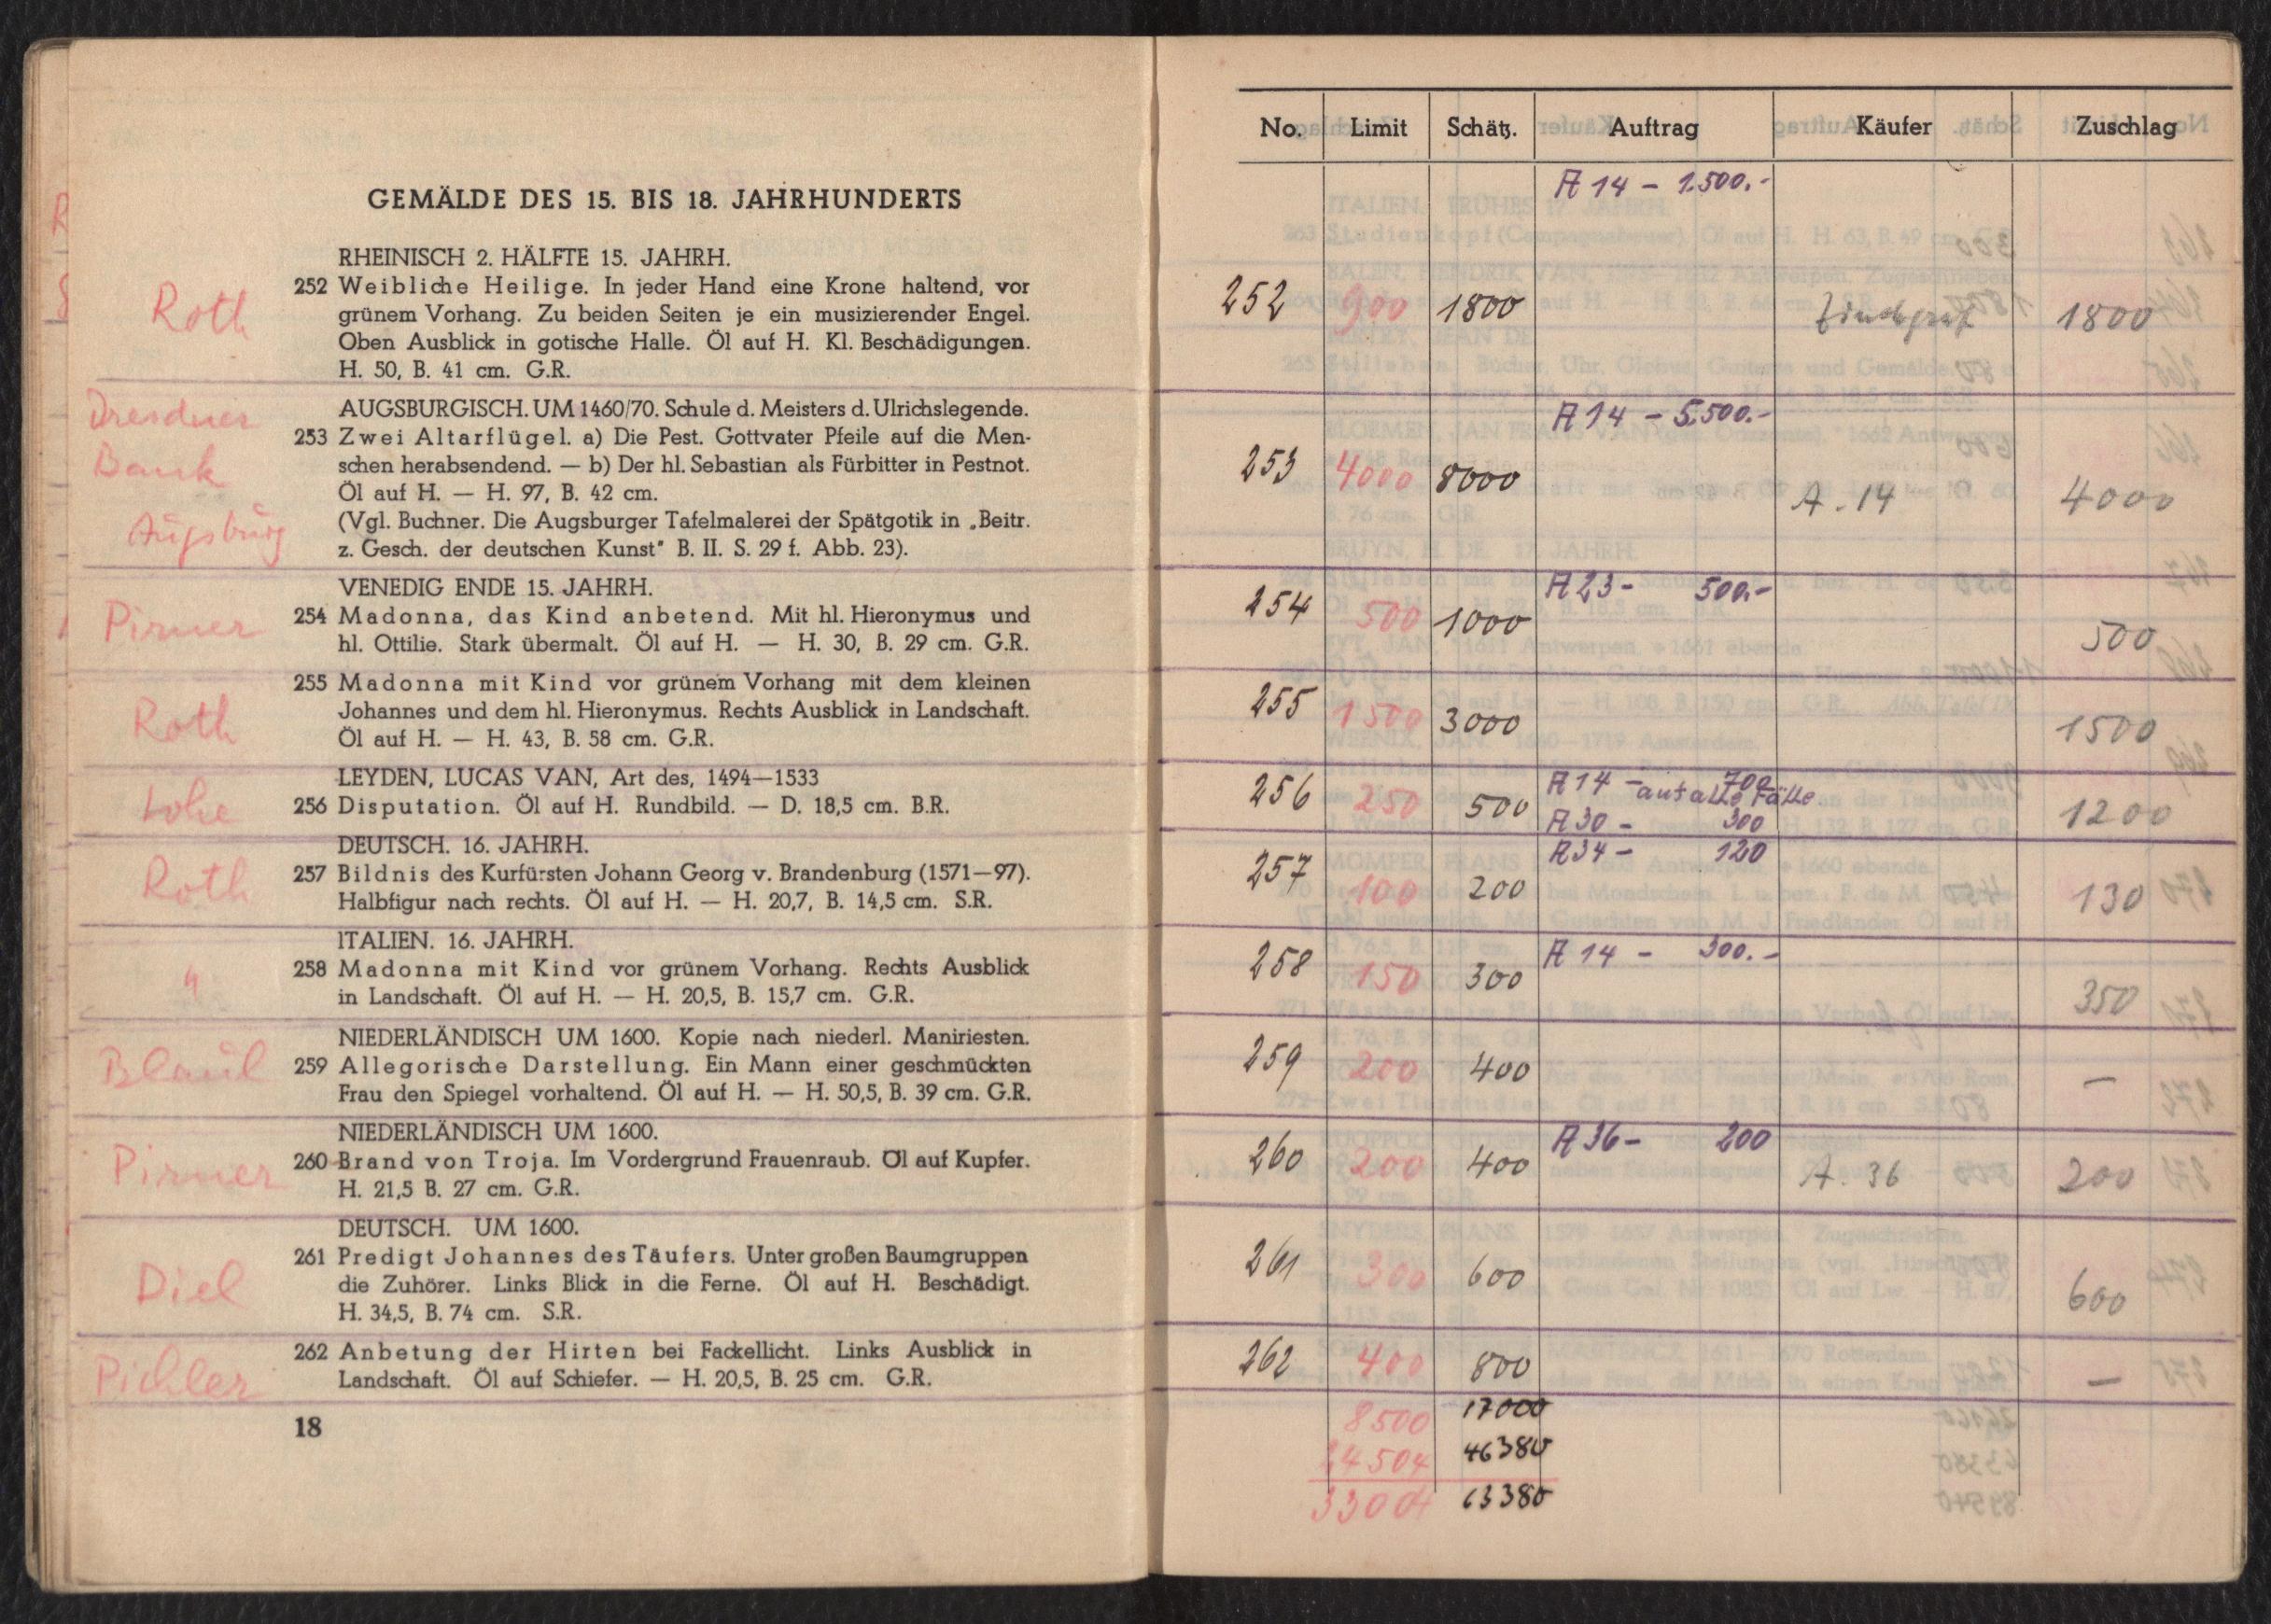 GEMÄLDE DES 15. BIS 18. JAHRHUNDERTS
RHEINISCH 2. HÄLFTE 15. JAHRH.
Roth
252 Weibliche Heilige. In jeder Hand eine Krone haltend, vor
grünem Vorhang. Zu beiden Seiten je ein musizierender Engel.
Oben Ausblick in gotische Halle. Öl auf H. Kl. Beschädigungen.
H. 50, B. 41 cm. G.R.
Dresdner
Bank
Augsburg
AUGSBURGISCH. UM 1460/70. Schule d. Meisters d. Ulrichslegende.
253 Zwei Altarflügel. a) Die Pest. Gottvater Pfeile auf die Men-
schen herabsendend. — b) Der hl. Sebastian als Fürbitter in Pestnot.
Öl auf H. — H. 97, B. 42 cm.
(Vgl. Buchner. Die Augsburger Tafelmalerei der Spätgotik in „Beitr.
z. Gesch. der deutschen Kunst" B. II. S. 29 f. Abb. 23).
VENEDIG ENDE 15. JAHRH.
Pirner
254 Madonna, das Kind anbetend. Mit hl. Hieronymus und
hl. Ottilie. Stark übermalt. Öl auf H. — H. 30, B. 29 cm. G.R.
Roth
255 Madonna mit Kind vor grünem Vorhang mit dem kleinen
Johannes und dem hl. Hieronymus. Rechts Ausblick in Landschaft.
Öl auf H. — H. 43, B. 58 cm. G.R.
LEYDEN, LUCAS VAN, Art des, 1494—1533
Lohe
256 Disputation. Öl auf H. Rundbild. — D. 18,5 cm. B.R.
DEUTSCH. 16. JAHRH.
Roth
257 Bildnis des Kurfürsten Johann Georg v. Brandenburg (1571—97).
Halbfigur nach rechts. Öl auf H. — H. 20,7, B. 14,5 cm. S.R.
ITALIEN. 16. JAHRH.
"
258 Madonna mit Kind vor grünem Vorhang. Rechts Ausblick
in Landschaft. Öl auf H. — H. 20,5, B. 15,7 cm. G.R.
NIEDERLÄNDISCH UM 1600. Kopie nach niederl. Maniriesten.
Blaul
259 Allegorische Darstellung. Ein Mann einer geschmückten
Frau den Spiegel vorhaltend. Öl auf H. — H. 50,5, B. 39 cm. G.R.
NIEDERLÄNDISCH UM 1600.
Pirner
260 Brand von Troja. Im Vordergrund Frauenraub. Öl auf Kupfer.
H. 21,5 B. 27 cm. G.R.
DEUTSCH. UM 1600.
Diel
261 Predigt Johannes des Täufers. Unter großen Baumgruppen
die Zuhörer. Links Blick in die Ferne. Öl auf H. Beschädigt.
H. 34,5, B. 74 cm. S.R.
Pichler
262 Anbetung der Hirten bei Fackellicht. Links Ausblick in
Landschaft. Öl auf Schiefer. — H. 20,5, B. 25 cm. G.R.
18
No. Limit Schätz. Auftrag Käufer Zuschlag
A 14 - 1.500.-
252 900 1800 1800
A 14 - 5.500.-
253 4000 8000 A. 14 4000
A 23 - 500.-
254 500 1000 500
255 1500 3000 1500
A 14 - 700
auf alle Fälle
256 250 500 1200
A 30 - 300
A 34 - 120
257 100 200 130
A 14 - 300.-
258 150 300 350
259 200 400 —
A 36 - 200
260 200 400 A. 36 200
261 300 600 600
262 400 800 —
8500 17000
24504 46380
33004 63380